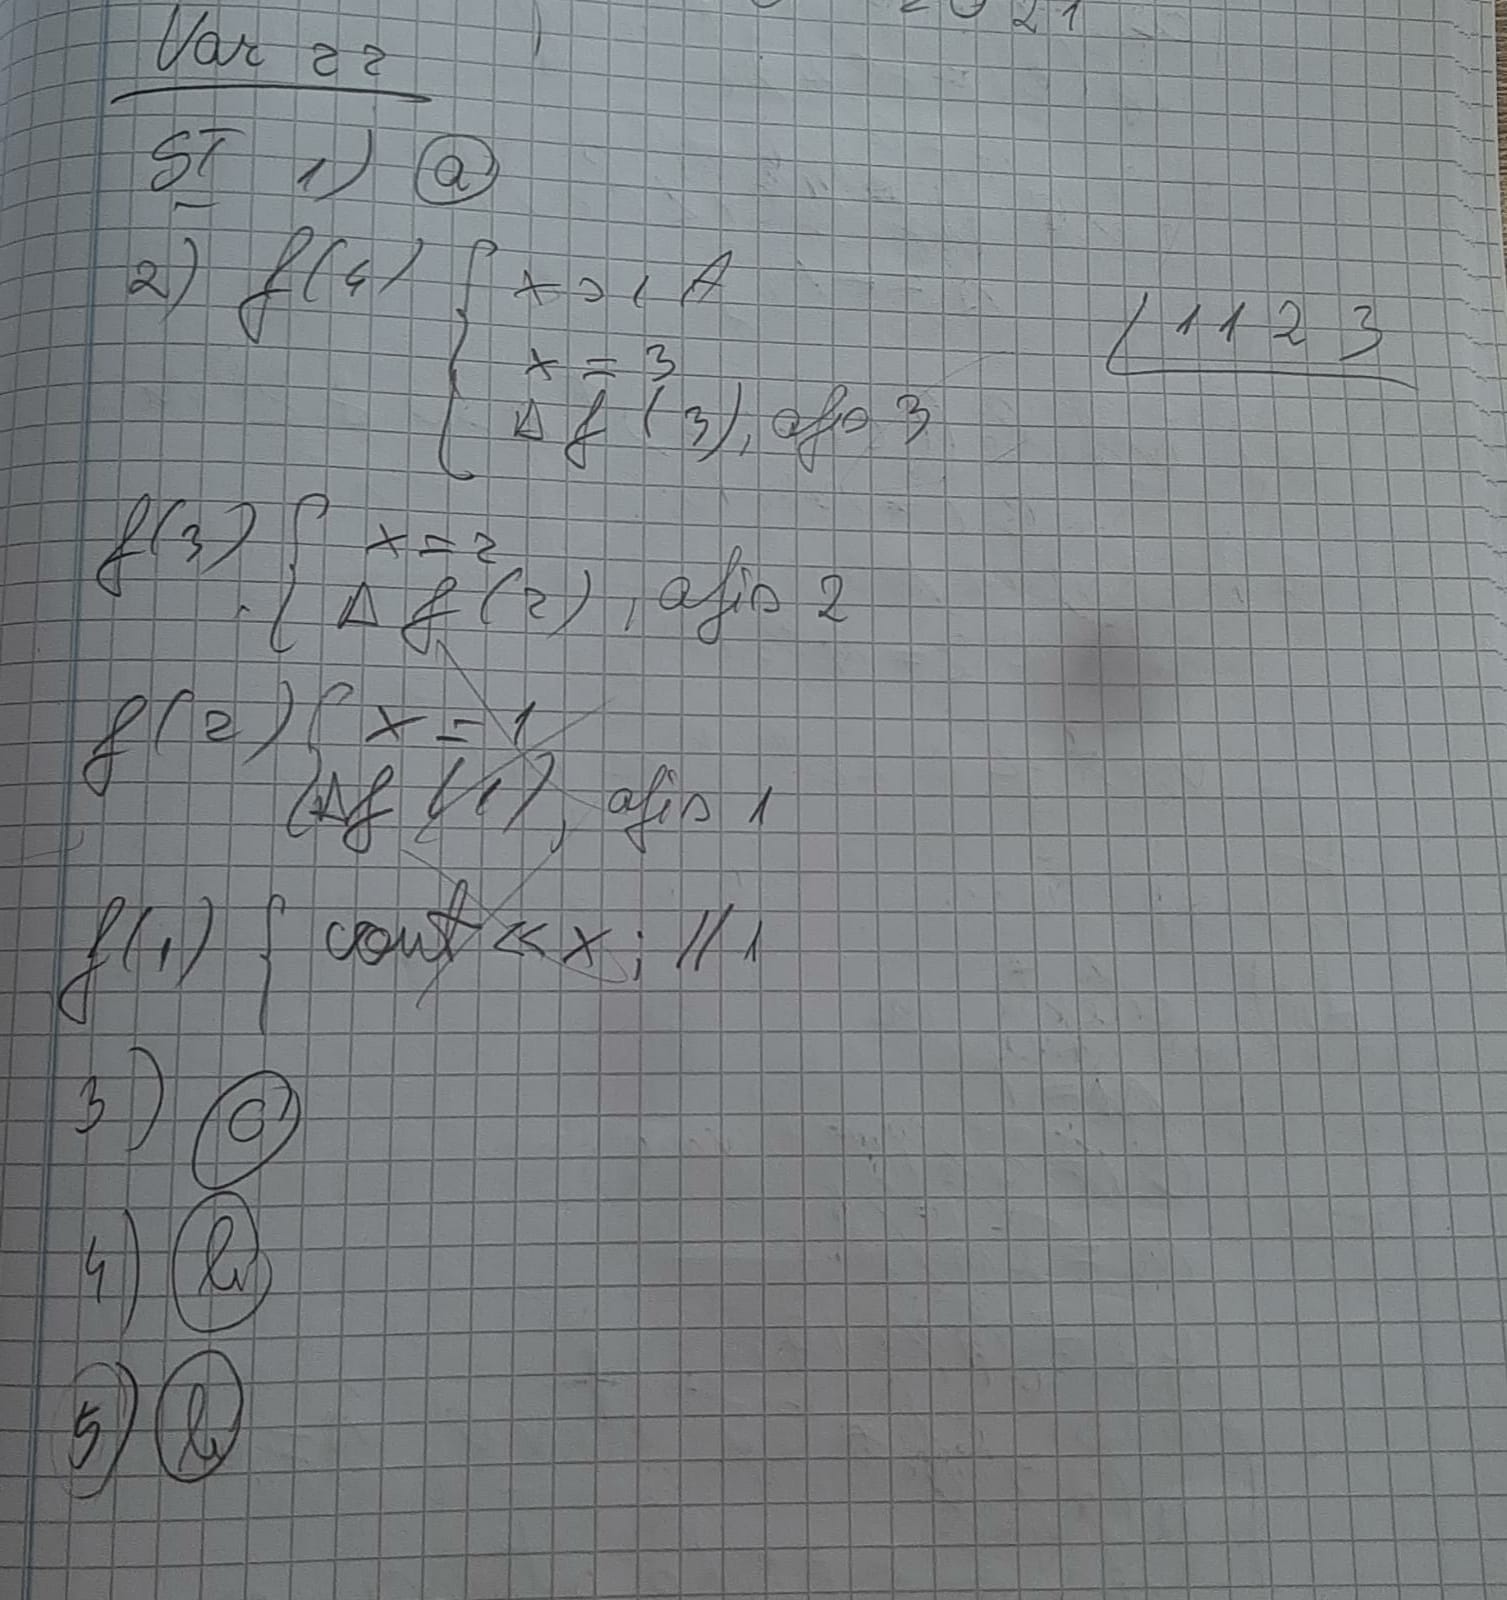 2021
Var 22
SI 1) a
2) f(4) { x > 1 A
x = 3
Δ f(3), afis 3
1123
f(3) { x = 2
Δ f(2), afis 2
f(2) { x = 1
Δ f(1), afis 1
f(1) { cout << x; // 1
3) c
4) b
5) b